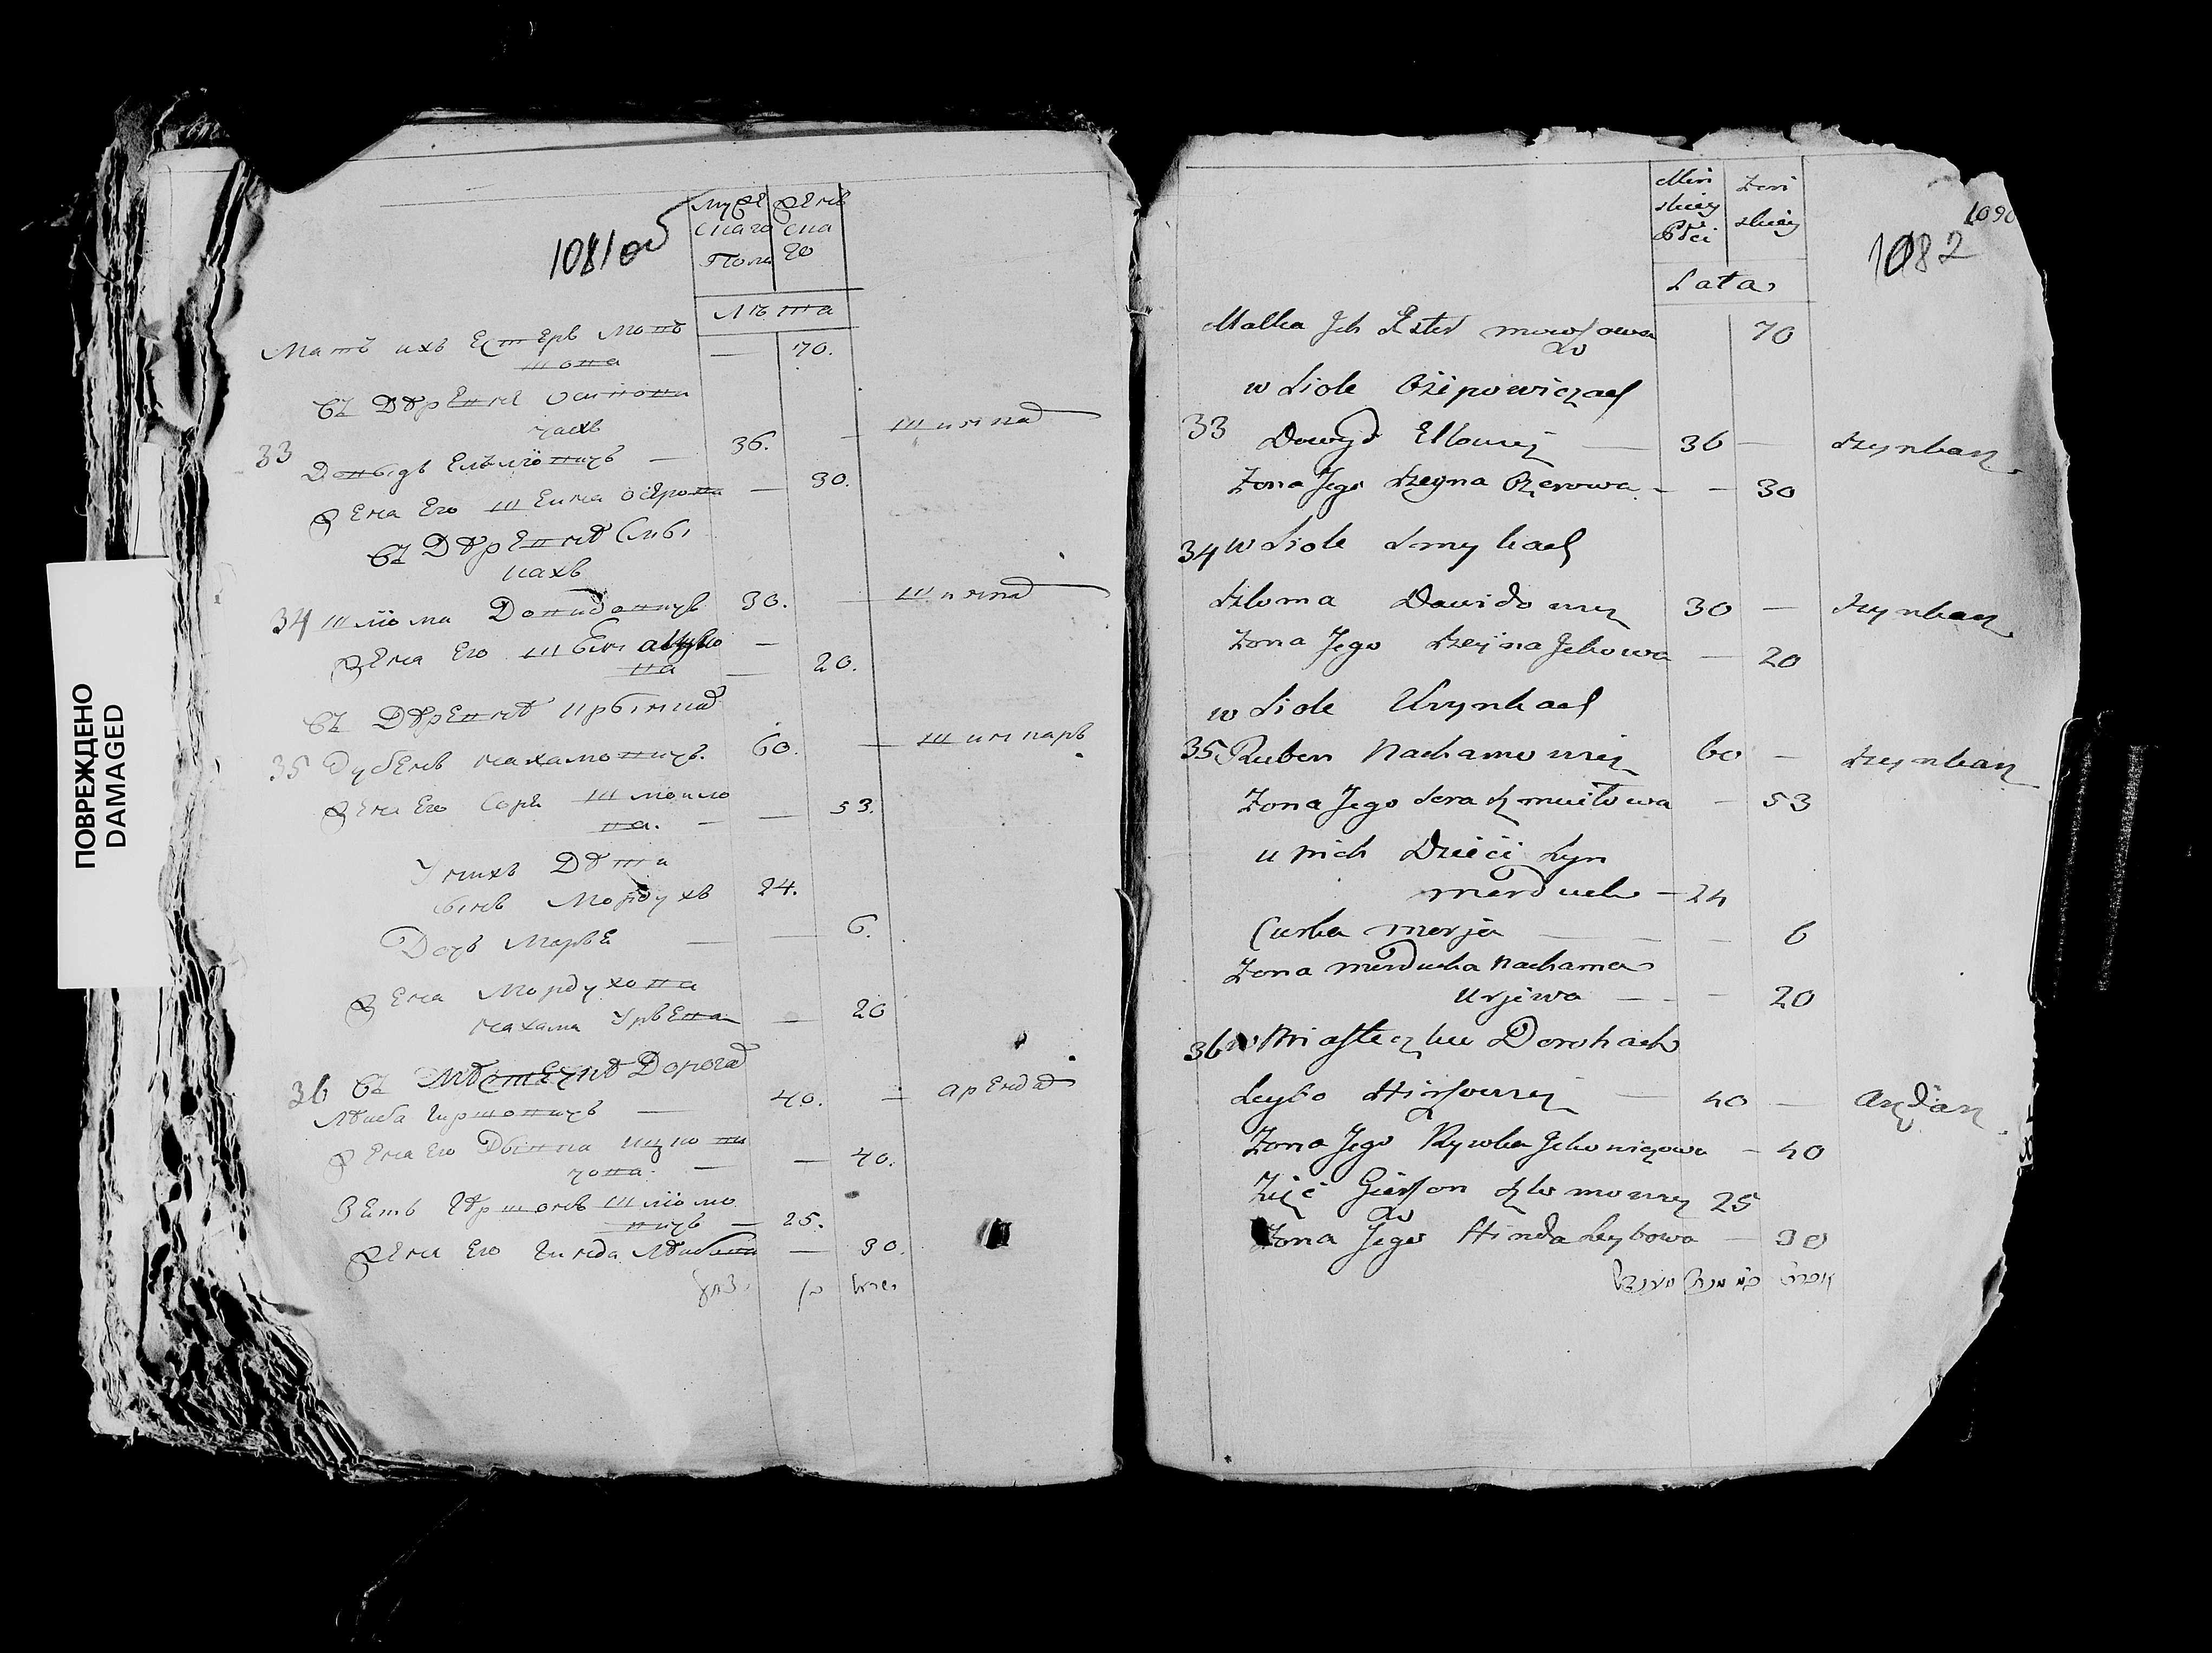 ПОВРЕЖДЕНО
DAMAGED
1081об
Муже Жень
скаго ска
Пола го
Лѣта
Мать ихъ Естеръ Мов
шова — 70.
Въ Деревнѣ Осипови
чахъ
33 Довыдъ Ельіовичъ — 36. — шинкар
Жена Его Шейна Осерова — 30.
Въ Деревнѣ
34 Шліома Довидовичъ 30. — шинкар
Жена Его
ва — 20.
Въ Деревнѣ Крынка
35 Рубенъ Нахамовичъ. 60. — шинкарь
Жена Его Сора Шмоило
ва. — — 53.
У нихъ Дѣти
сынъ Мордухъ 24.
Дочъ Марье — — 6.
Жена Мордухова
Нахама Урьева — 20
36 Въ Мѣстечкѣ Дорога
Лейба Гиршовичъ — 40. — аренда
Жена Его Рывка Ицко ви
чова. — — 40.
Зять Гершонъ Шліомо
вичъ — 25.
Жена Его Гинда Лейбова — 30.
Męn Żeń
skiey skiey
Płci
Lata
1090
1082
Matka Ich Ester mowszowa 70
w Siole Osipowiczach
33 Dowyd Eliowicz — 36 — Szynkarz
Żona Jego Szeyna Ozerowa — — 30
34 w Siole
Szloma Dawidowicz 30 — Szynkarz
Żona Jego Szeyna Jckowa — 20
w Siole Krynkach
35 Ruben Nachamowicz 60 — Szynkarz
Żona Jego Sora Szmuiłowa — 53
u Nich Dzieci Syn
Morduch — 24
Curka Morja — — — 6
Żona Morducha Nachama
Urjewa — — — 20
36 w Miasteczku Dorohach
Leybo Hirszowicz — 40 — Arędarz
Żona Jego Rywka Jckowiczowa — 40
Zięć Gierszon Szlomowicz 25
Żona Jego Hinda Leybowa — 30